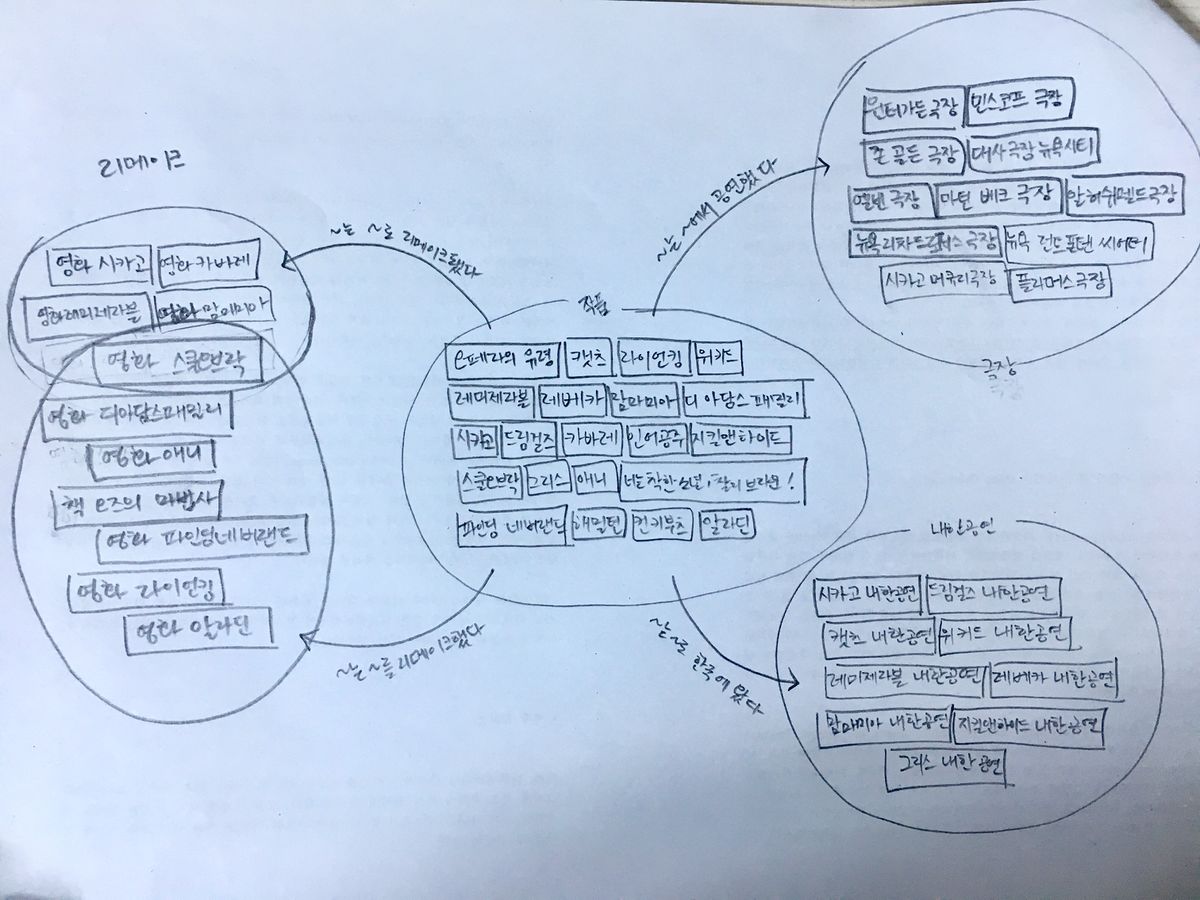 리메이크
~는 ~로 리메이크됐다
영화 시카고 영화 카바레
영화레미제라블 영화 맘마미아
영화 스쿨오브락
영화 디아담스패밀리
영화 애니
책 오즈의 마법사
영화 파인딩네버랜드
영화 라이언킹
영화 알라딘
~는 ~를 리메이크했다
작품
오페라의 유령 캣츠 라이언킹 위키드
레미제라블 레베카 맘마미아 디 아담스 패밀리
시카고 드림걸즈 카바레 인어공주 지킬앤하이드
스쿨오브락 그리스 애니 너는 착한 소년, 찰리 브라운!
파인딩 네버랜드 해밀턴 킨키부츠 알라딘
~는 ~에서 공연했다
윈터가든 극장 민스코프 극장
존 골든 극장 대사극장 뉴욕시티
엘빈 극장 마틴 베크 극장 알 허쉬펠드극장
뉴욕 리차드로저스 극장 뉴욕 런드폰텐 씨어터
시카고 머큐리극장 플리머스극장
극장
~는 ~로 한국에 왔다
내한공연
시카고 내한공연 드림걸즈 내한공연
캣츠 내한공연 위키드 내한공연
레미제라블 내한공연 레베카 내한공연
맘마미아 내한공연 지킬앤하이드 내한공연
그리스 내한 공연